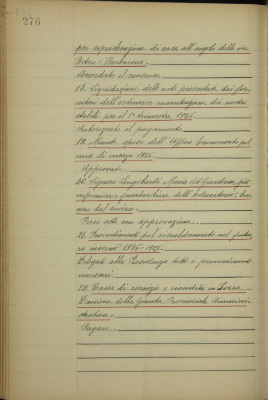 276
per sopraelevazione di casa all'angolo delle vie
Peteri e Barbarana.
Accordato il consenso.
18. Liquidazione delle note presentate dai for-
nitori dell'ordinaria manutenzione dei nostri
stabili per il 1° trimestre 1925.
Autorizzato il pagamento.
19. Minute spese dell'Uffizio Economato pel
mese di marzo 1925.
Approvate.
20. Signora Longobardi Maria ved. Giordano, già
infermiera e guardarobiera dell'Educatorio:
nero del servizio.
Preso atto con approvazione.
21. Provvedimenti pel riscaldamento nel futu-
ro inverno 1925-1926.
Delegati alla Presidenza tutti i provvedimenti
necessari.
22. Tassa di esercizio e rivendita in
Decisione della Giunta Provinciale Amminis-
trativa.
Pagare.